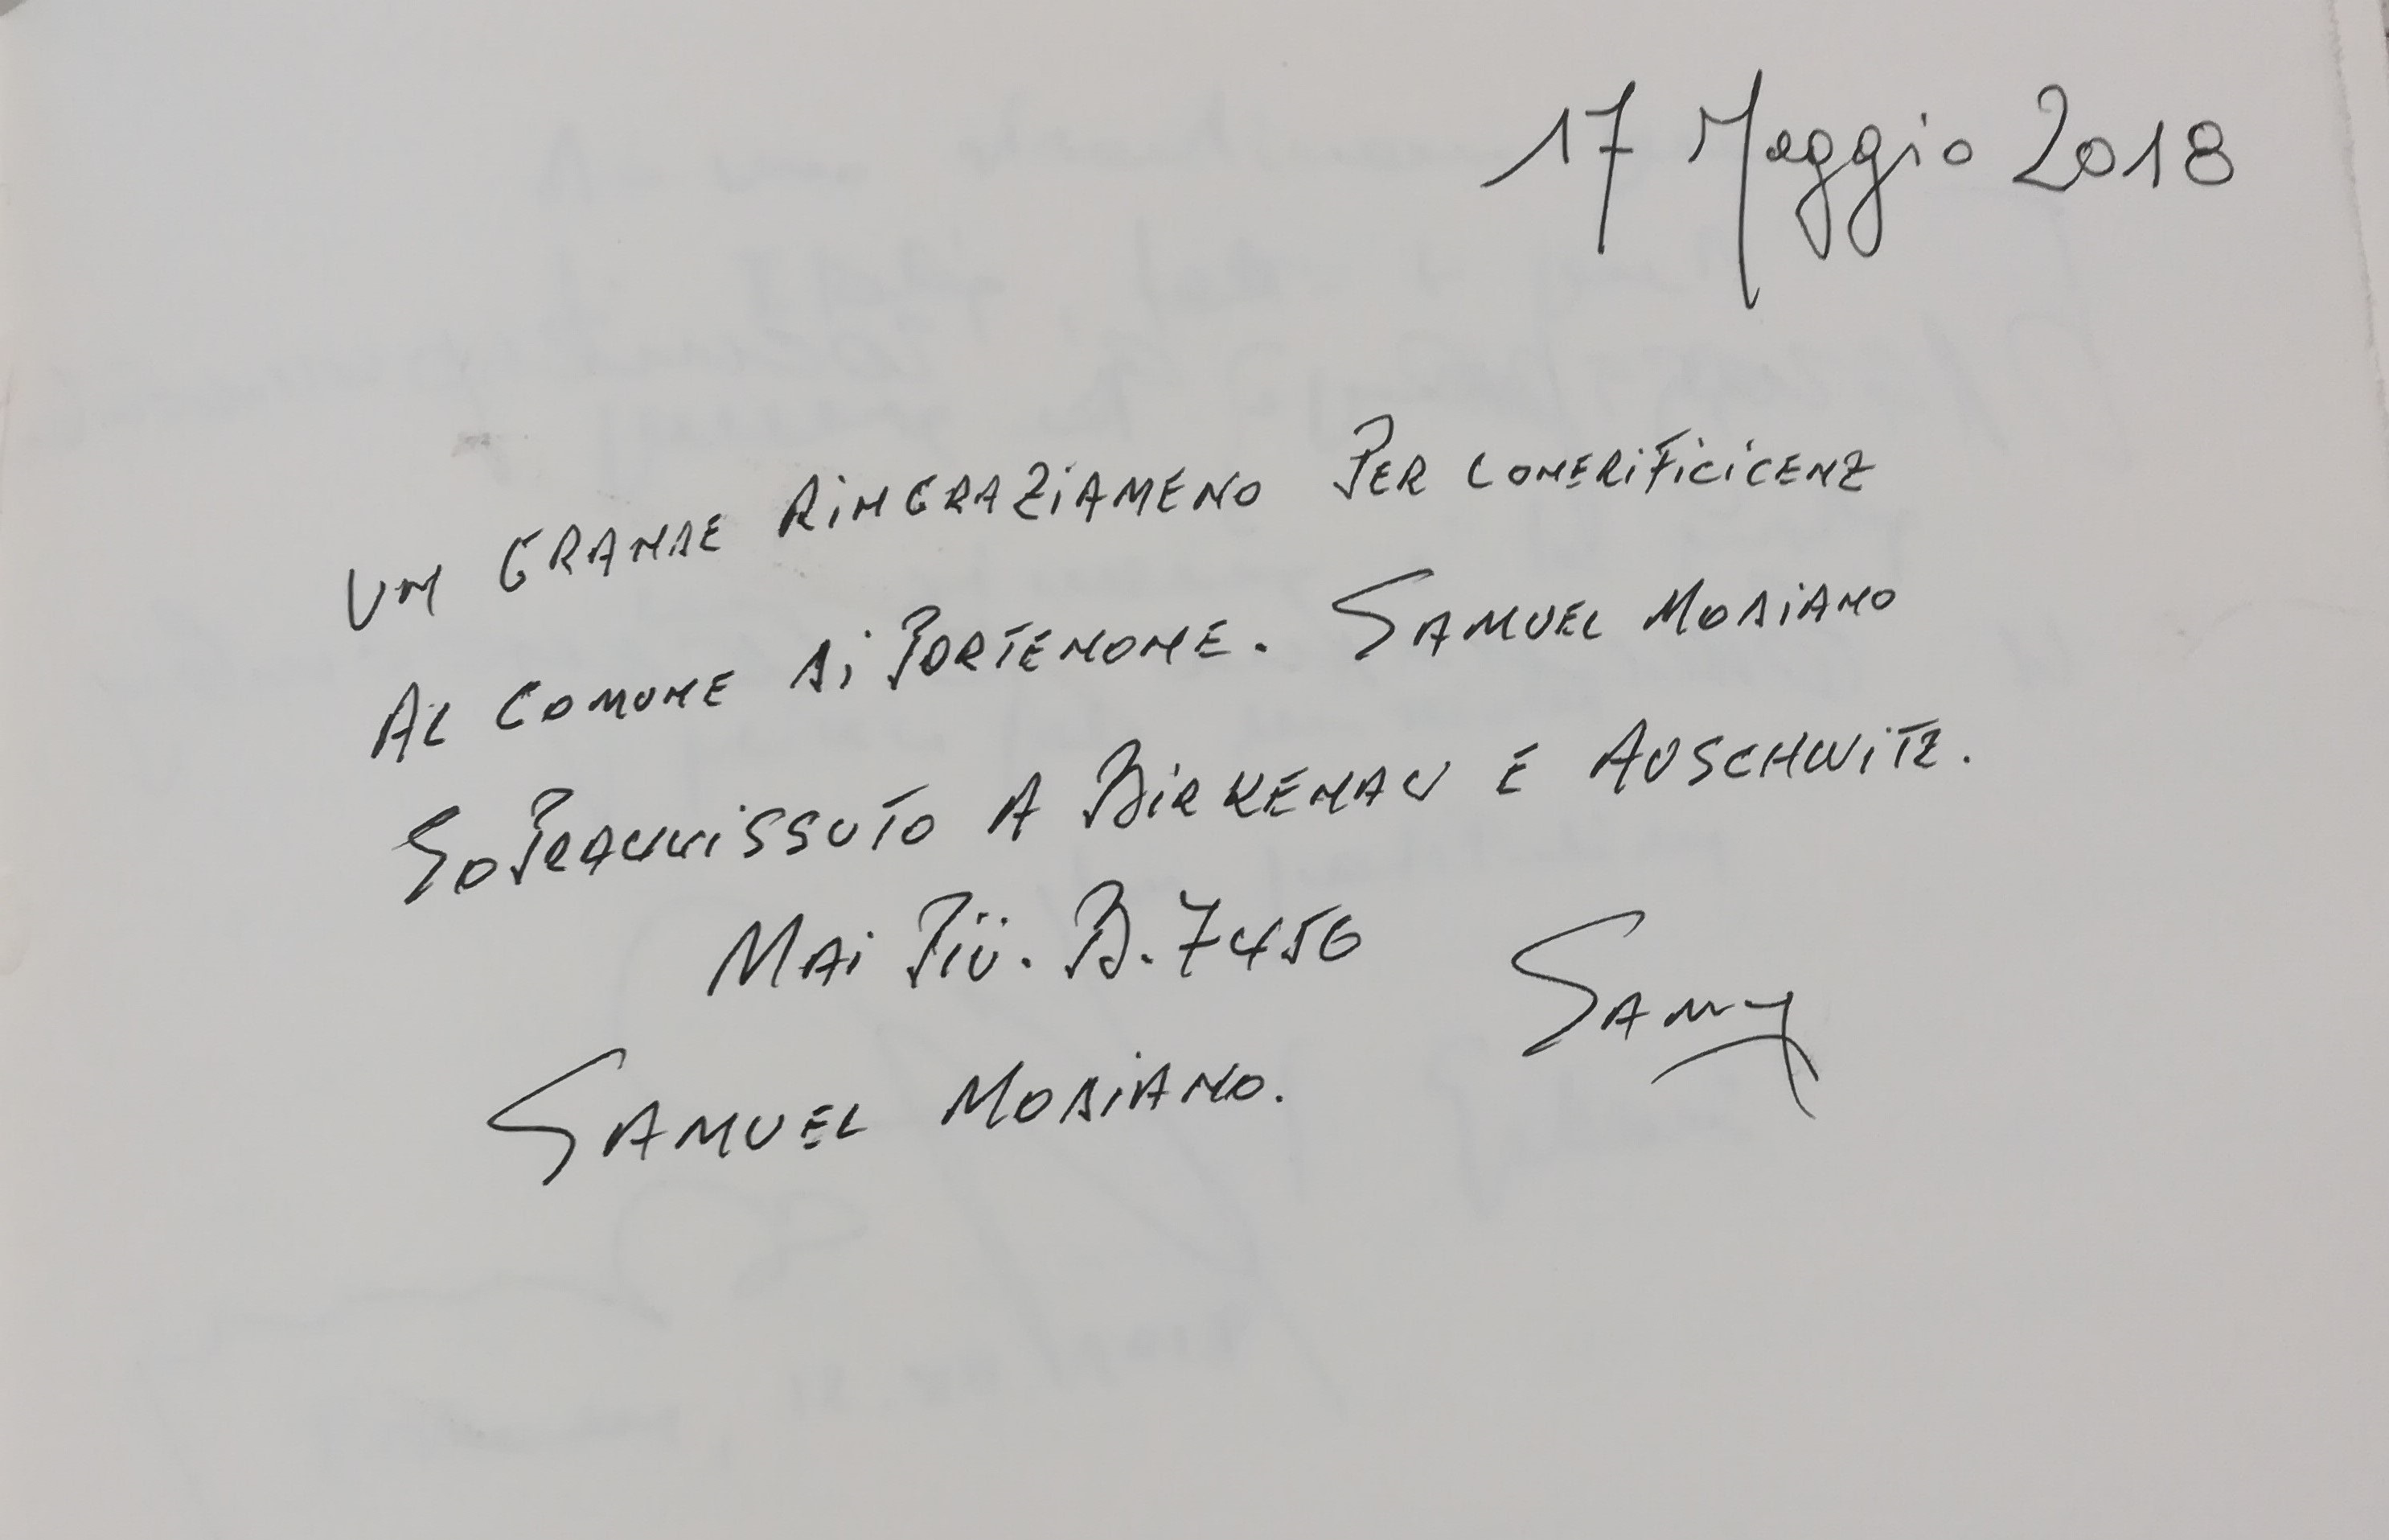 17 Maggio 2018
UN GRANDE RINGRAZIAMENO PER CONERIFICICENZ
AL COMUNE DI PORTENONE. SAMUEL MODIANO
SOPRAVVISSUTO A BIRKENAU E AUSCHWITZ.
MAI PIÙ. B.7456
SAMY
SAMUEL MODIANO.